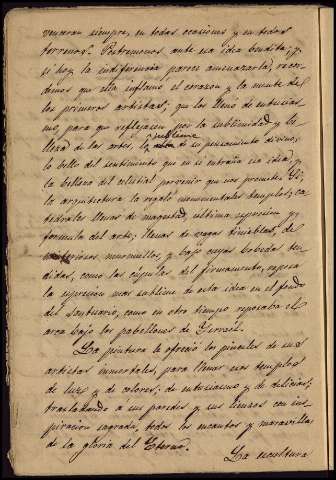 venceran siempre, en todas ocasiones y en todos
terrenos? Postremonos ante esa idea bendita; y
si hoy la indiferencia parece amenazarla, recor-
demos que ella inflamó el corazon y la mente de
los primeros artistas; que los llenó de entusias-
mo, para que reflejasen por la sublimidad y be-
lleza de las artes, lo sublime de su pensamiento divino;
lo bello del sentimiento que en sí entraña esa idea, y
la belleza del celestial porvenir que nos promete. Sí;
la arquitectura la regaló monumentales templos; ca-
tedrales llenas de magestad, última espresion y
fórmula del arte; llenas de vagos
misteriosos murmullos, y bajo cuyas bobedas ten-
didas, como las cúpulas del firmamento, reposa
la espresion mas sublime de esta idea en el fondo
del Santuario, como en otro tiempo reposaba el
arca bajo los pabellones de Israel.
La pintura le ofreció los pinceles de sus
artistas inmortales, para llenar esos templos
de luz y de colores; de entusiasmo y de delicias;
trasladando a sus paredes y sus lienzos con ins-
piracion sagrada, todos los encantos y maravillas
de la gloria del Eterno.
La escultura